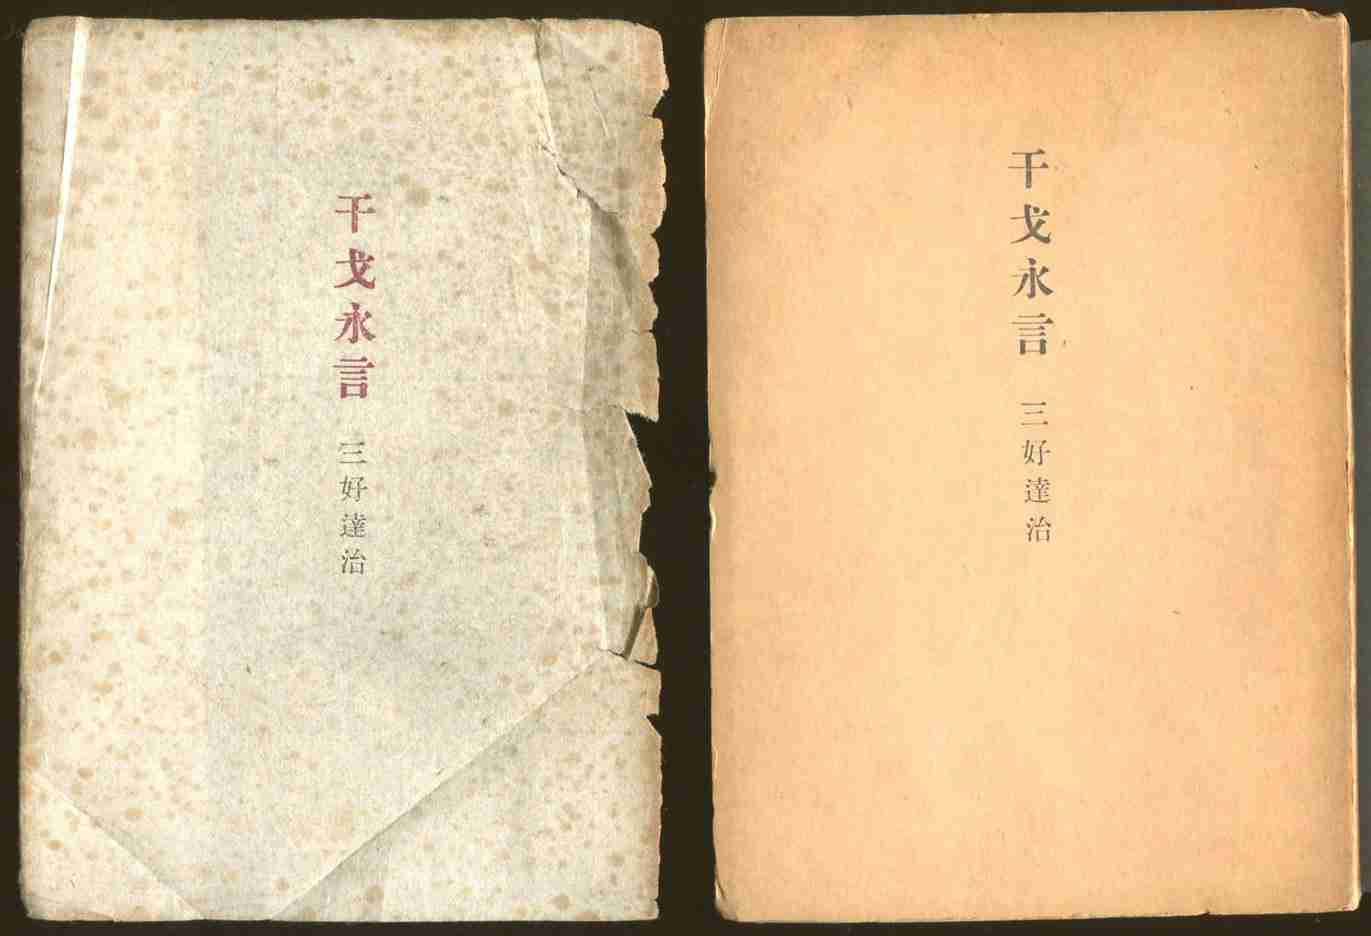 干戈永言 三好達治
干戈永言 三好達治